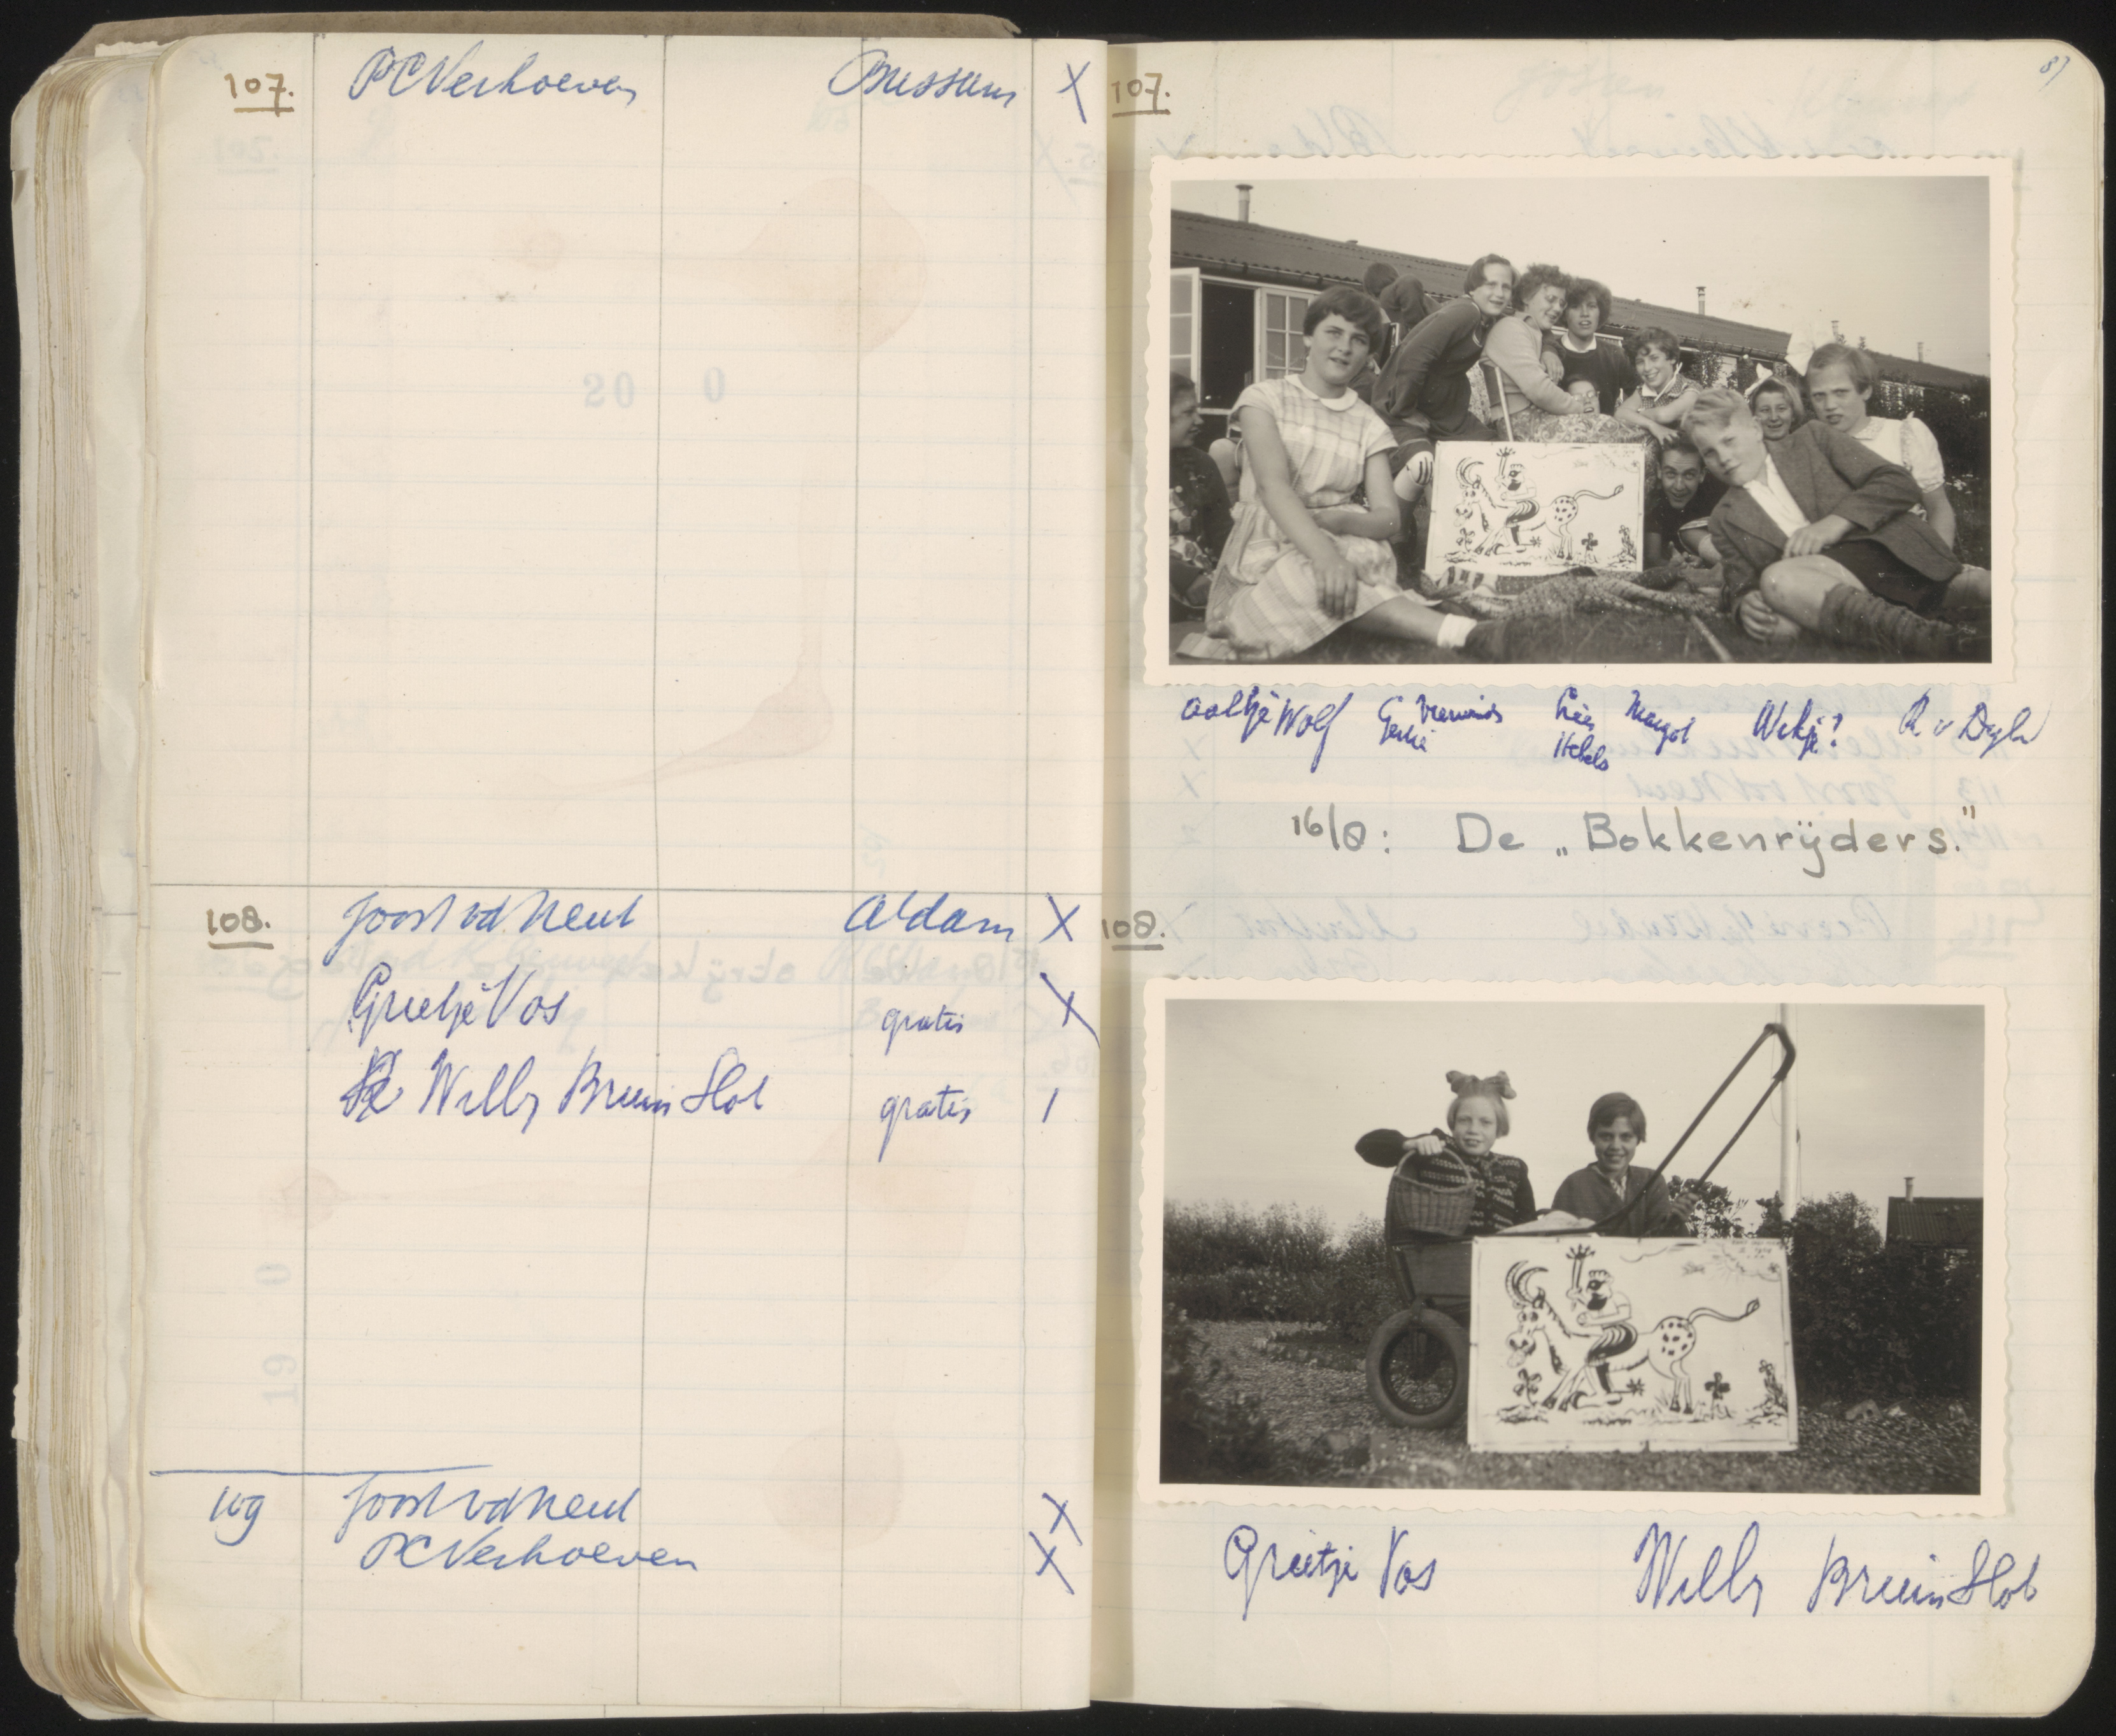 107. PC Verhoeven Bussum X
20 0
108. Joost vd Neut A'dam X
Grietje Vos gratis X
Willy Bruin Slot gratis 1
109 Joost vd Neut X
PC Verhoeven X
87
107.
Aaltje Wolf G Margot Wikje? R v
Gertie Hebels
16/8: De „Bokkenrijders."
108.
Grietje Vos Willy Bruin Slot